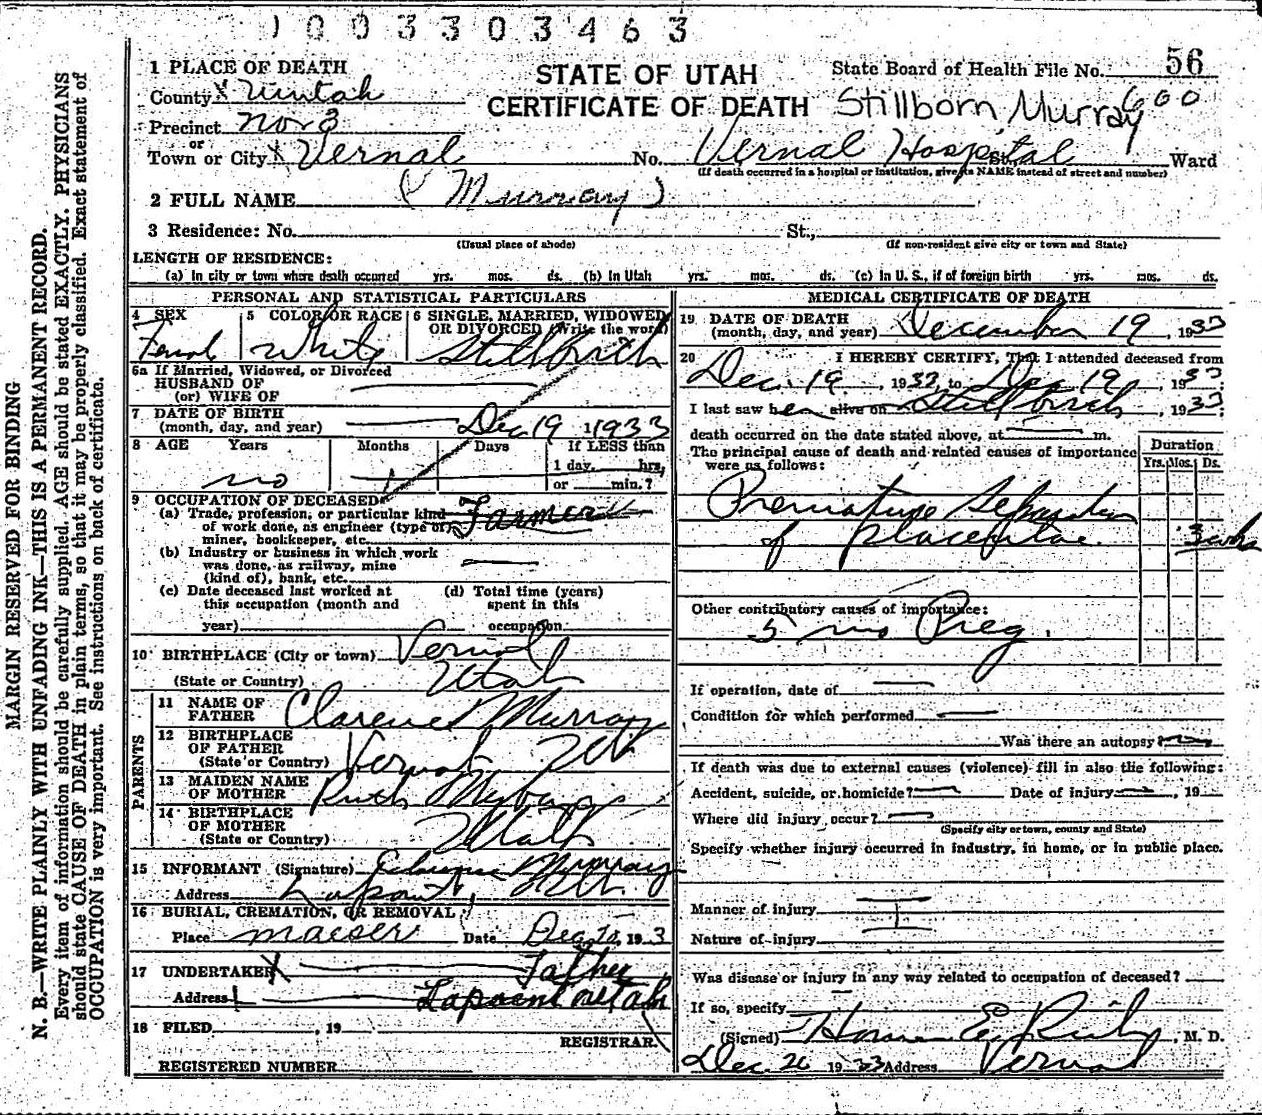 1003303463
56
1 PLACE OF DEATH
STATE OF UTAH
State Board of Health File No.
County Uintah
CERTIFICATE OF DEATH
Stillborn, Murray 600
Precinct No 3
or
Town or City Vernal No. Vernal Hospital St., Ward
(If death occurred in a hospital or institution, give its NAME instead of street and number)
2 FULL NAME (Murray)
3 Residence: No. St.,
(Usual place of abode) (If non-resident give city or town and State)
LENGTH OF RESIDENCE:
(a) In city or town where death occurred yrs. mos. ds. (b) In Utah yrs. mos. ds. (c) In U. S., if of foreign birth yrs. mos. ds.
PERSONAL AND STATISTICAL PARTICULARS
4 SEX 5 COLOR OR RACE 6 SINGLE, MARRIED, WIDOWED
OR DIVORCED (Write the word)
White Stillbirth
6a If Married, Widowed, or Divorced
HUSBAND OF
(or) WIFE OF
7 DATE OF BIRTH
(month, day, and year) Dec 19 1933
8 AGE Years Months Days If LESS than
1 day. hrs,
no or min.?
9 OCCUPATION OF DECEASED
(a) Trade, profession, or particular kind
of work done, as engineer (type of) Farmer
miner, bookkeeper, etc.
(b) Industry or business in which work
was done, as railway, mine
(kind of), bank, etc.
(c) Date deceased last worked at (d) Total time (years)
this occupation (month and spent in this
year) occupation
10 BIRTHPLACE (City or town) Vernal
(State or Country) Utah
PARENTS
11 NAME OF
FATHER Clarence Murray
12 BIRTHPLACE
OF FATHER
(State or Country) Vernal Ut
13 MAIDEN NAME
OF MOTHER Ruth
14 BIRTHPLACE
OF MOTHER
(State or Country) Utah
15 INFORMANT (Signature) Clarence Murray
Address Lapoint, Utah
16 BURIAL, CREMATION, OR REMOVAL
Place Maeser Date Dec 20, 193 3
17 UNDERTAKER Father
Address Lapoint Utah
18 FILED , 19
REGISTRAR.
REGISTERED NUMBER
MEDICAL CERTIFICATE OF DEATH
19 DATE OF DEATH
(month, day, and year) December 19, 1933
20 I HEREBY CERTIFY, That I attended deceased from
Dec. 19, 1933, to Dec 19, 1933
I last saw her alive on Stillbirth, 1933;
death occurred on the date stated above, at m.
The principal cause of death and related causes of importance
were as follows:
Duration
Yrs. Mos. Ds.
Premature Separation
of placentae. 3 wks
Other contributory causes of importance:
5 mo Preg.
If operation, date of
Condition for which performed
Was there an autopsy no
If death was due to external causes (violence) fill in also the following:
Accident, suicide, or homicide? Date of injury , 19
Where did injury occur?
(Specify city or town, county and State)
Specify whether injury occurred in industry, in home, or in public place.
Manner of injury
Nature of injury
Was disease or injury in any way related to occupation of deceased?
If so, specify
(Signed) E. , M. D.
Dec. 20 1933 Address Vernal
MARGIN RESERVED FOR BINDING
N. B.—WRITE PLAINLY WITH UNFADING INK—THIS IS A PERMANENT RECORD.
Every item of information should be carefully supplied. AGE should be stated EXACTLY. PHYSICIANS
should state CAUSE OF DEATH in plain terms, so that it may be properly classified. Exact statement of
OCCUPATION is very important. See instructions on back of certificate.